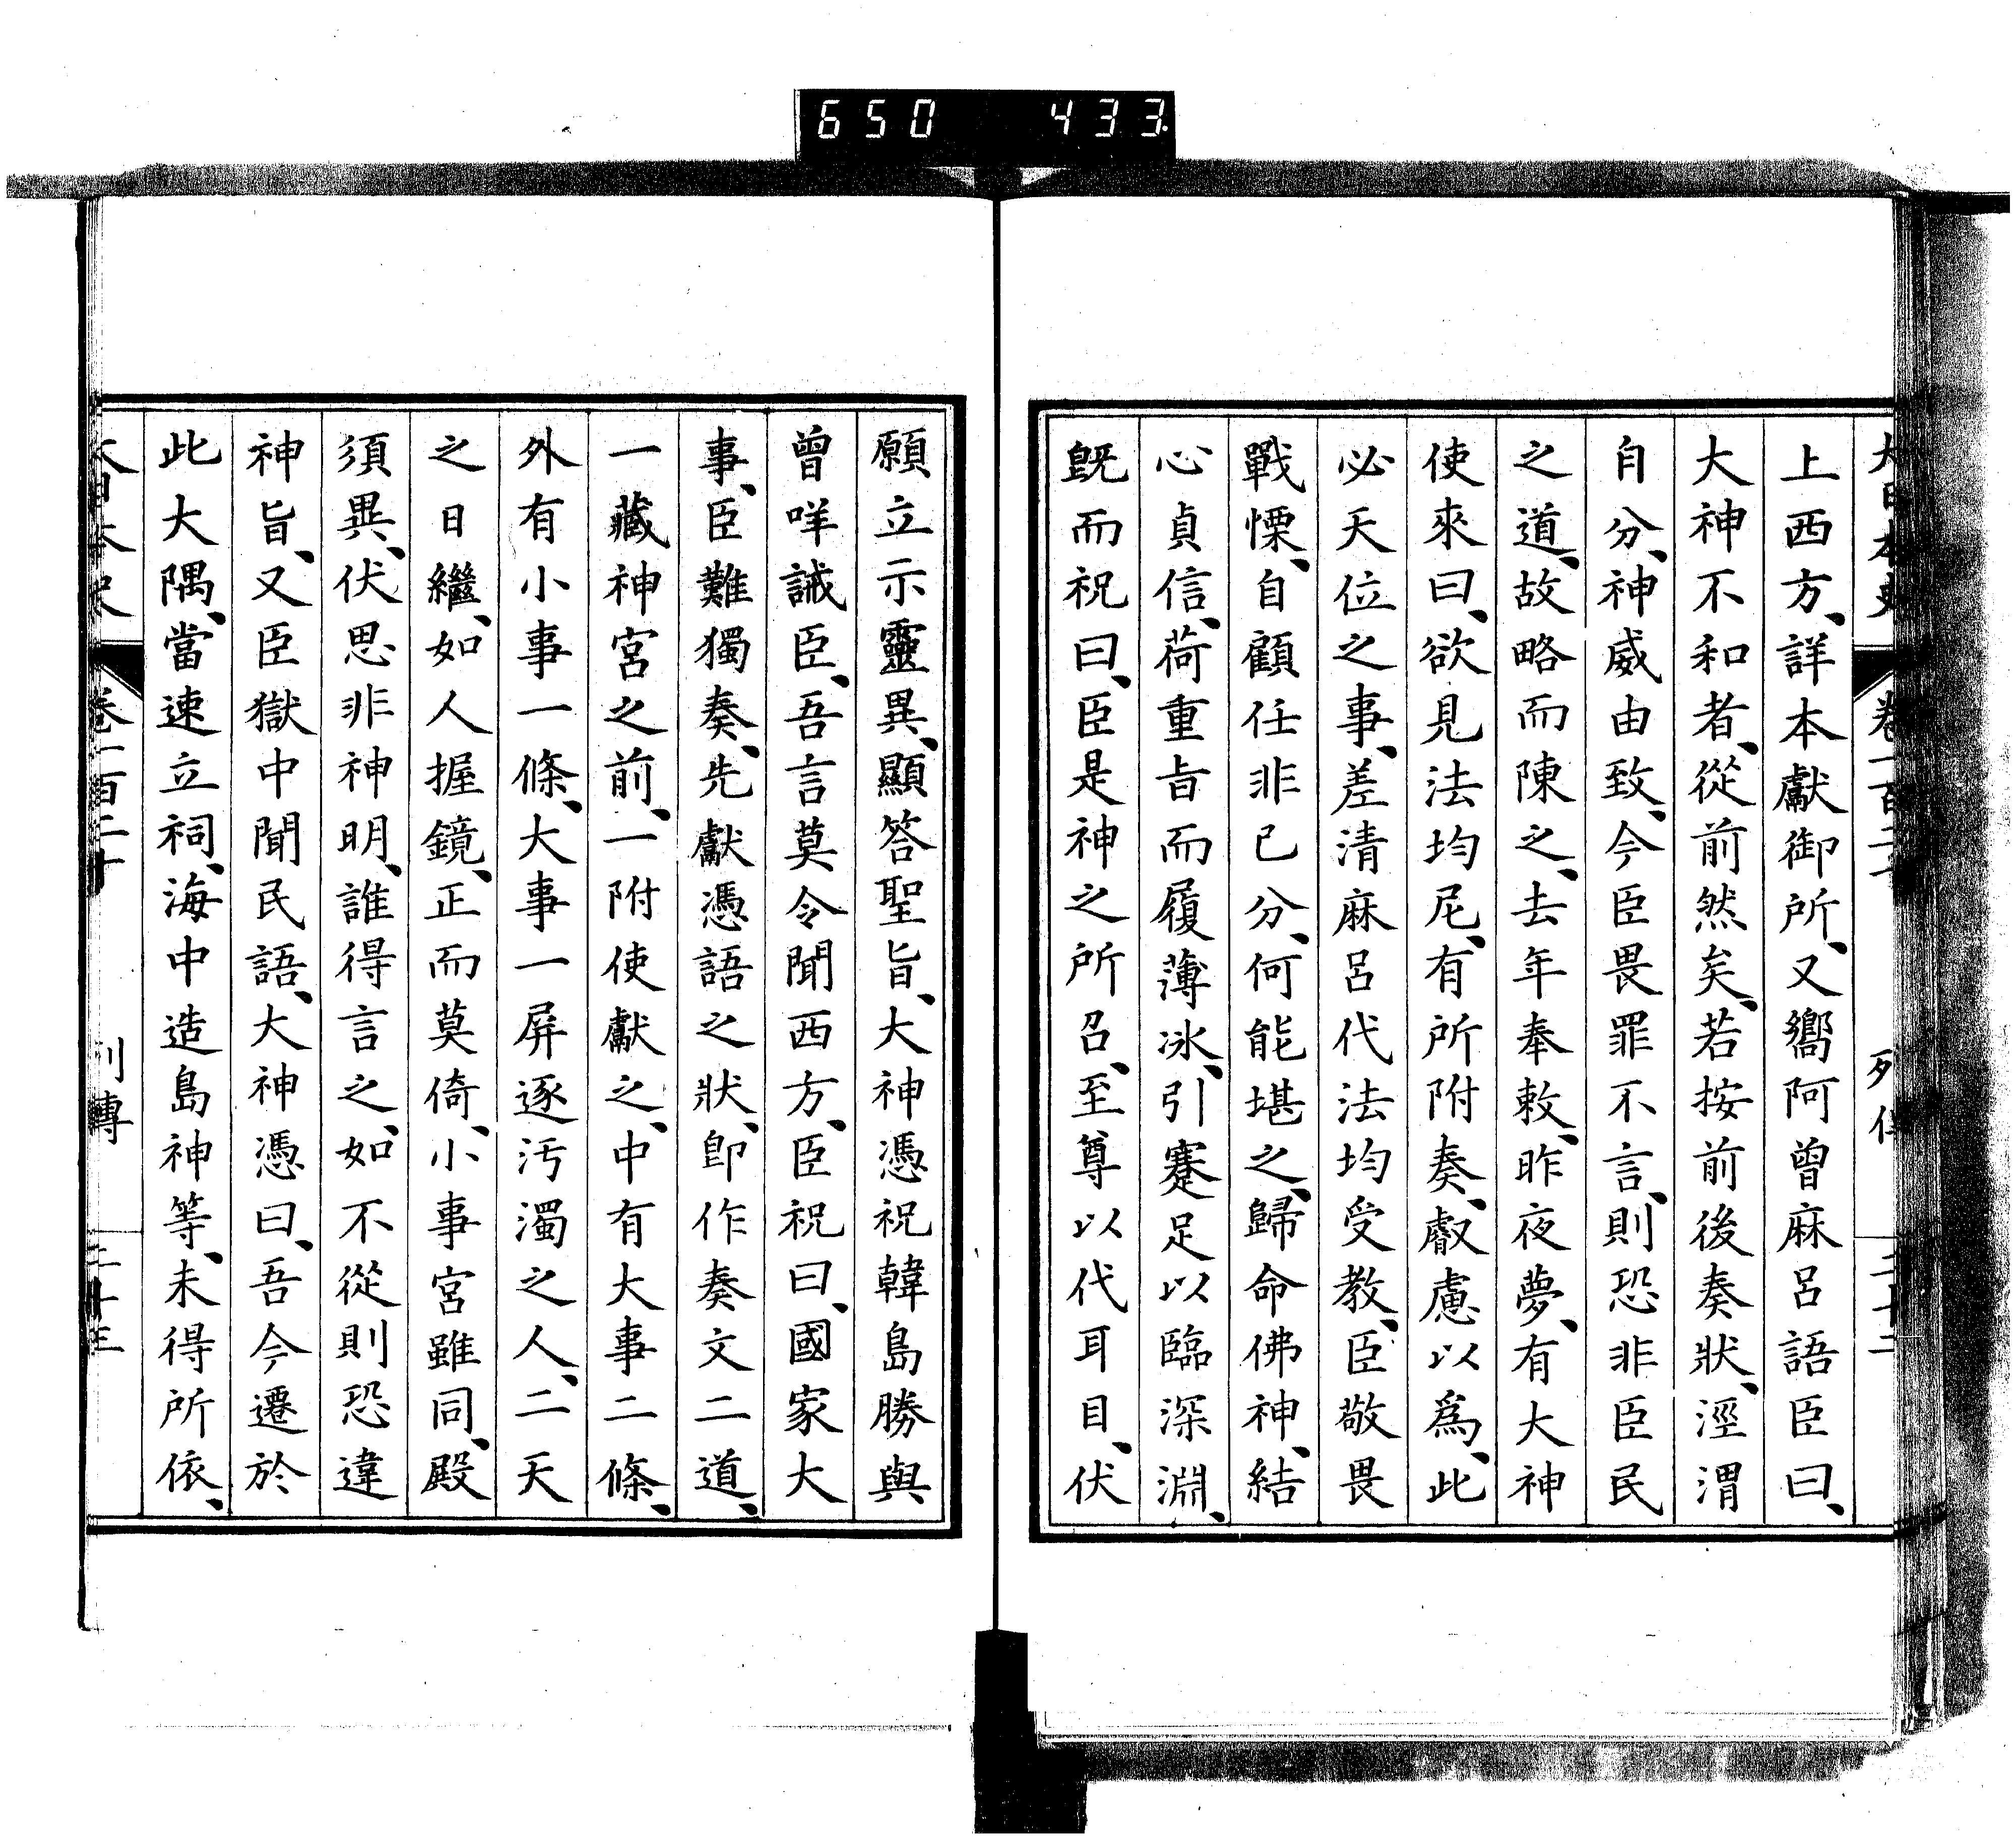 650 433
大日本史 卷一百二十 列傳 二十二
上西方、詳本獻御所、又嚮阿曾麻呂語臣曰、
大神不和者、從前然矣、若按前後奏狀、涇渭
自分、神威由致、今臣畏罪不言、則恐非臣民
之道、故略而陳之、去年奉敕、昨夜夢、有大神
使來曰、欲見法均尼、有所附奏、叡慮以爲、此
必天位之事、差清麻呂代法均受教、臣敬畏
戰慄、自顧任非已分、何能堪之、歸命佛神、結
心貞信、荷重旨而履薄冰、引蹇足以臨深淵、
既而祝曰、臣是神之所召、至尊以代耳目、伏
願立示靈異、顯答聖旨、大神憑祝韓島勝與
曾咩誡臣、吾言莫令聞西方、臣祝曰、國家大
事、臣難獨奏、先獻憑語之狀、卽作奏文二道、
一藏神宮之前、一附使獻之、中有大事二條、
外有小事一條、大事一屏逐汚濁之人、二天
之日繼、如人握鏡、正而莫倚、小事宮雖同、殿
須異、伏思非神明、誰得言之、如不從則恐違
神旨、又臣獄中聞民語、大神憑曰、吾今遷於
此大隅、當速立祠、海中造島神等、未得所依、
大日本史 卷一百二十 列傳 二十三